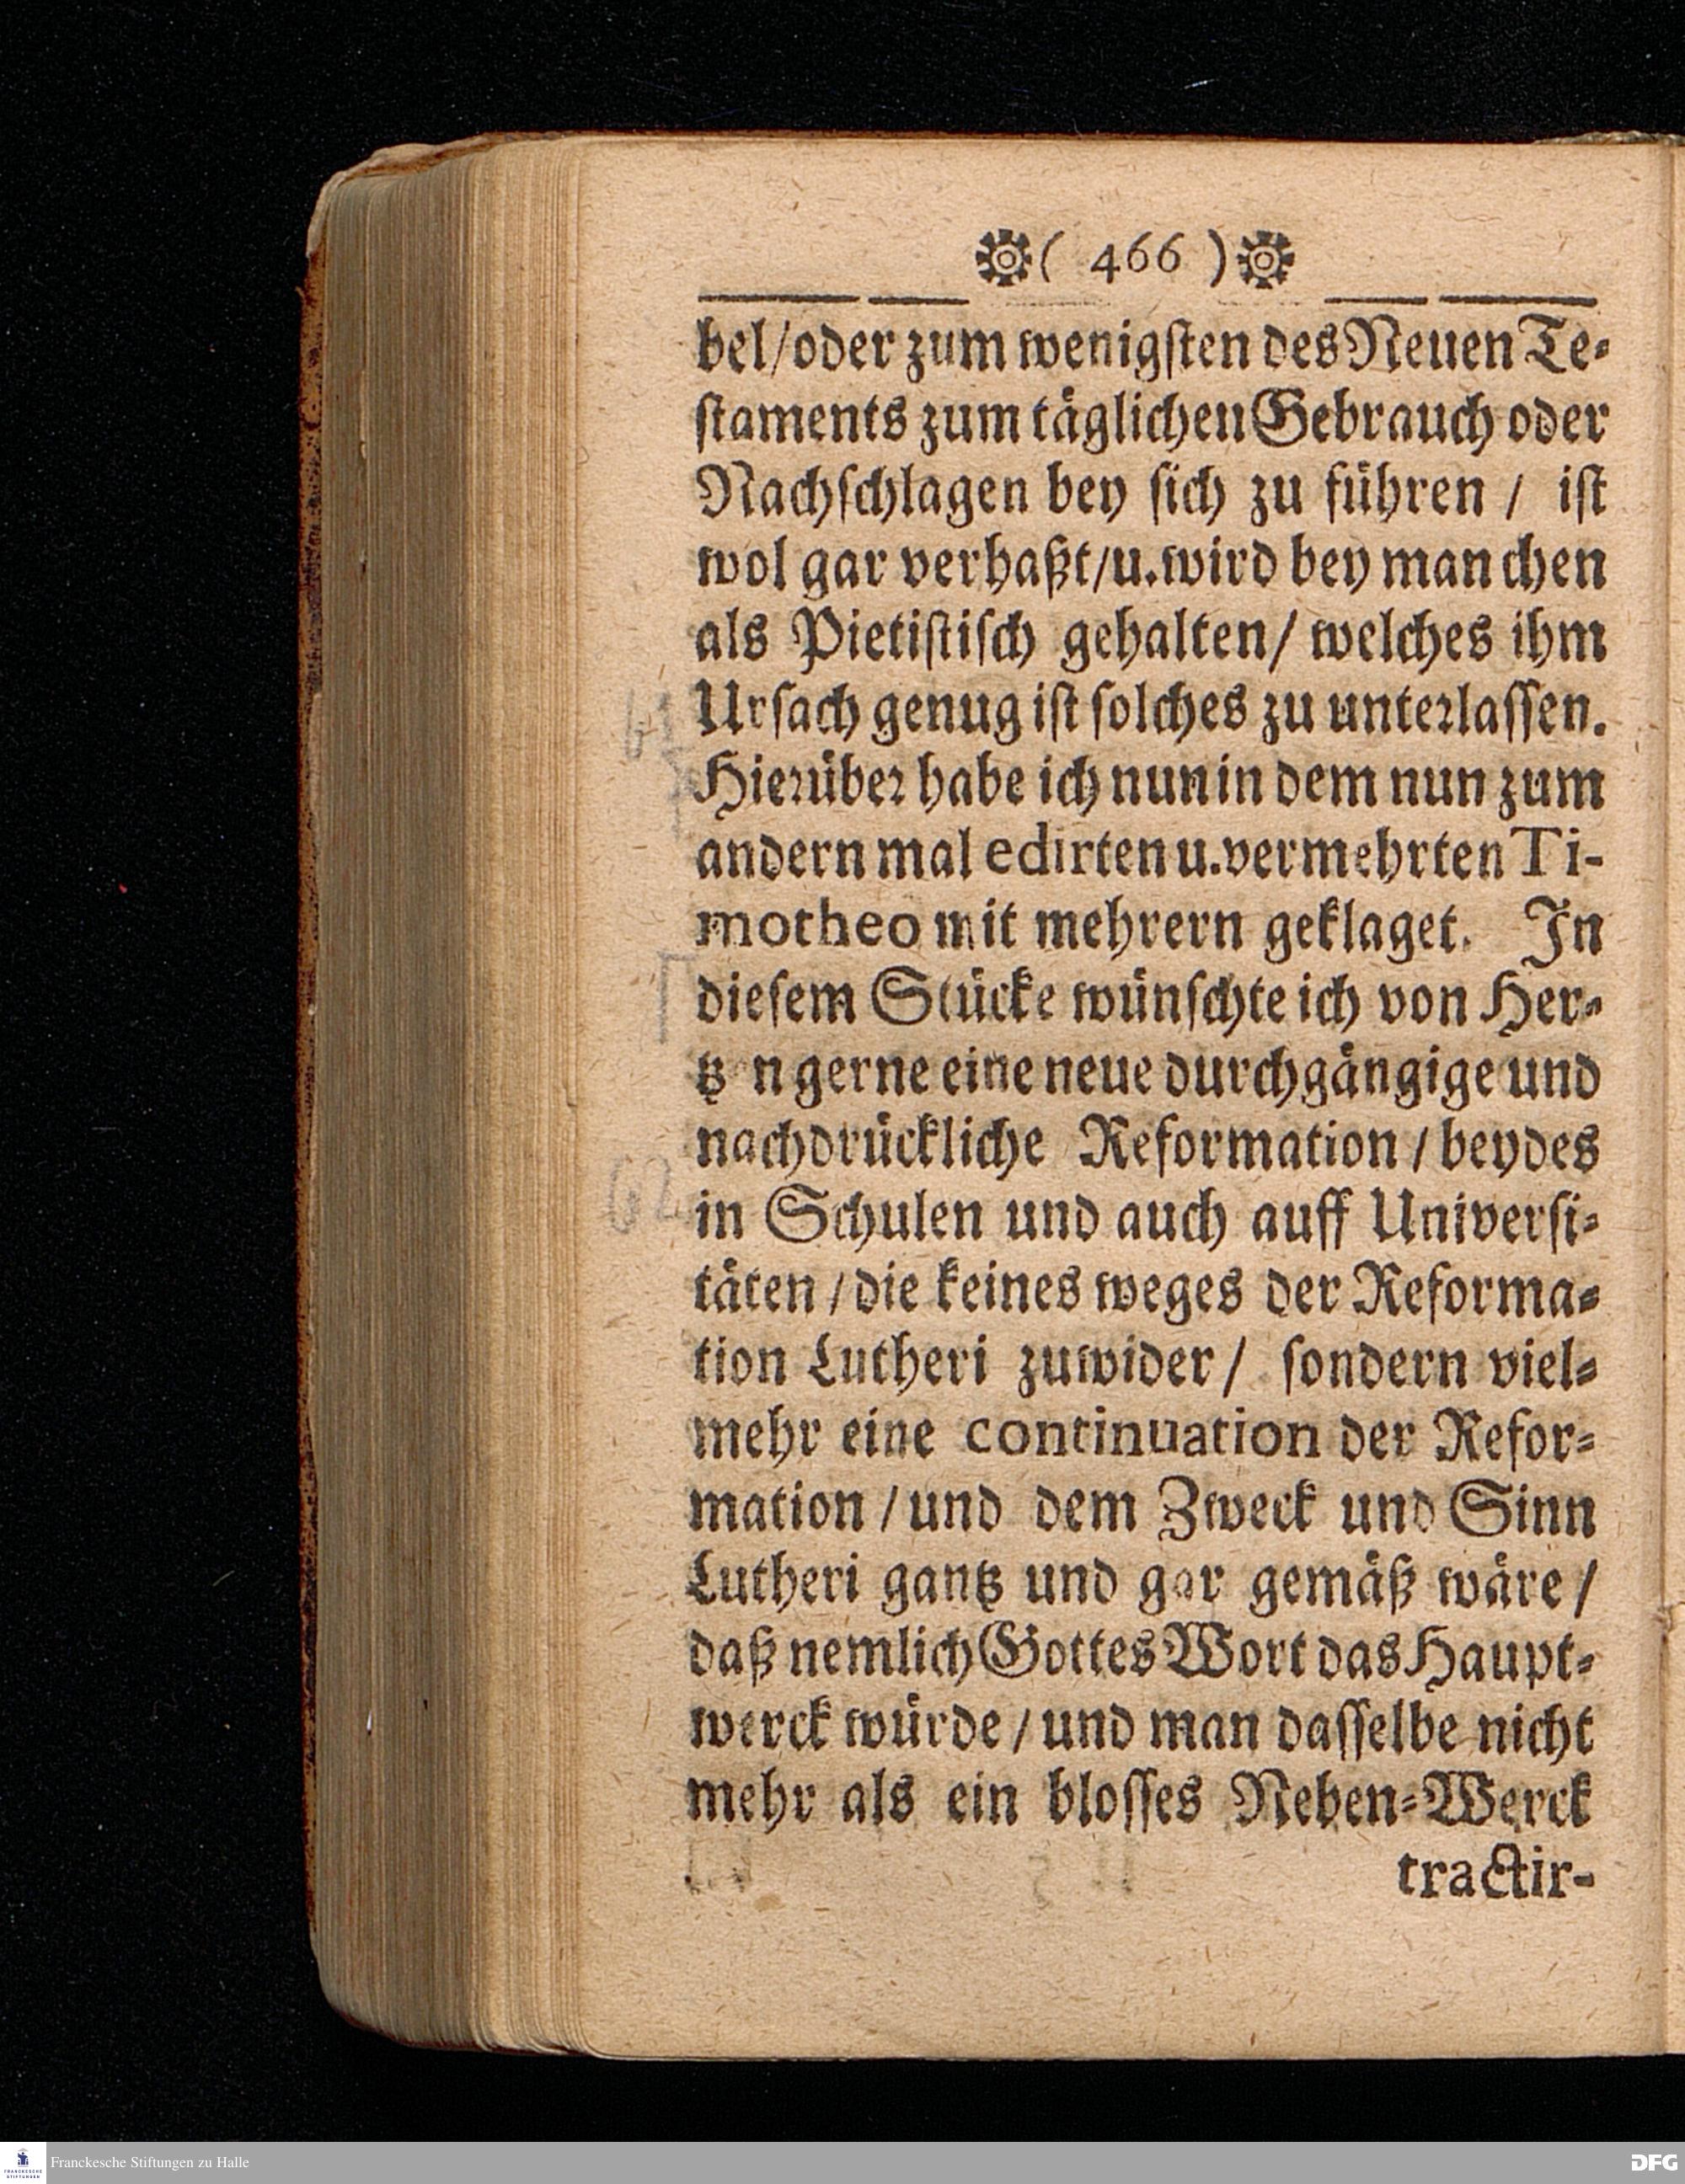 ( 466 )
bel/oder zum wenigſten des Neuen Te-
ſtaments zum täglichen Gebrauch oder
Nachſchlagen bey ſich zu führen / iſt
wol gar verhaßt/u. wird bey man chen
als Pietiſtiſch gehalten/ welches ihm
Urſach genug iſt ſolches zu unterlaſſen.
Hierüber habe ich nun in dem nun zum
andern mal edirten u. vermehrten Ti-
motheo mit mehrern geklaget. In
dieſem Stücke wünſchte ich von Her-
tz n gerne eine neue durchgängige und
nachdrückliche Reformation / beydes
in Schulen und auch auff Univerſi-
täten / die keines weges der Reforma-
tion Lutheri zuwider / ſondern viel-
mehr eine continuation der Refor-
mation / und dem Zweck und Sinn
Lutheri gantz und gar gemäß wäre /
daß nemlich Gottes Wort das Haupt-
werck würde / und man daſſelbe nicht
mehr als ein bloſſes Neben-Werck
tractir-
62
Franckesche Stiftungen zu Halle
FRANCKESCHE STIFTUNGEN
DFG